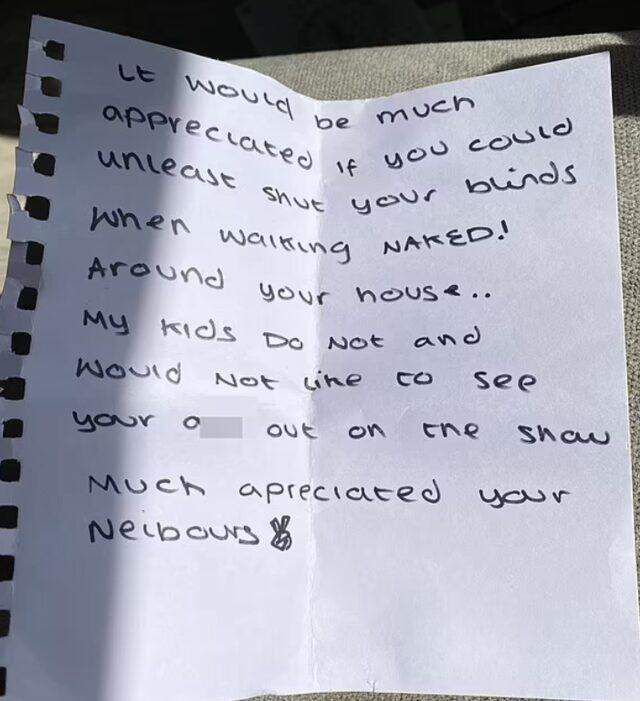 It would be much
appreciated if you could
unleast shut your blinds
when walking NAKED!
Around your house..
My kids Do Not and
would Not like to see
your a out on the show
Much apreciated your
Neibours